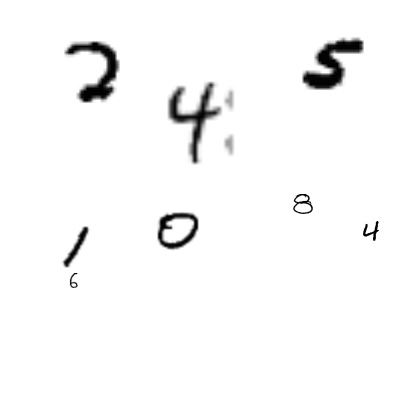 2 4 5
1 0 8 4
6